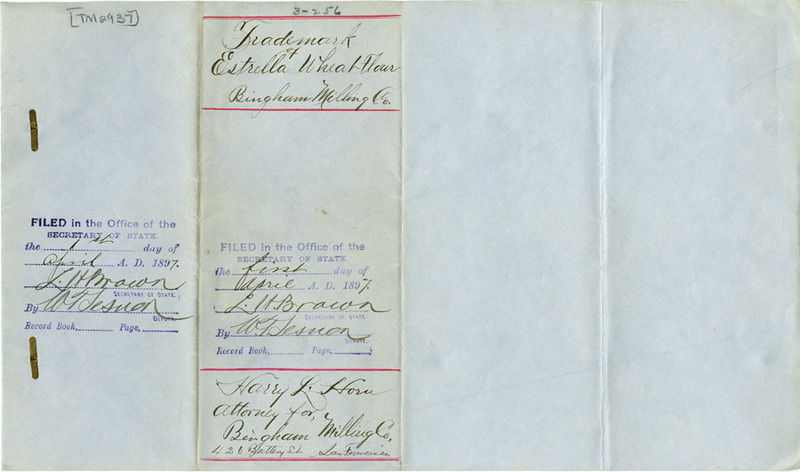 [TM2937]
3-256
Trademark
of
Estrella Wheat Flour
Bingham Milling Co.
FILED in the Office of the
SECRETARY OF STATE.
the 1st day of
April A. D. 1897.
L. H. Brown
SECRETARY OF STATE.
By
DEPUTY.
Record Book, Page,
FILED in the Office of the
SECRETARY OF STATE.
the first day of
April A. D. 1897
L. H. Brown
SECRETARY OF STATE.
By
DEPUTY.
Record Book, Page,
Harry L. Horn
Attorney for,
Bingham Milling Co.
426 Battery St. San Francisco